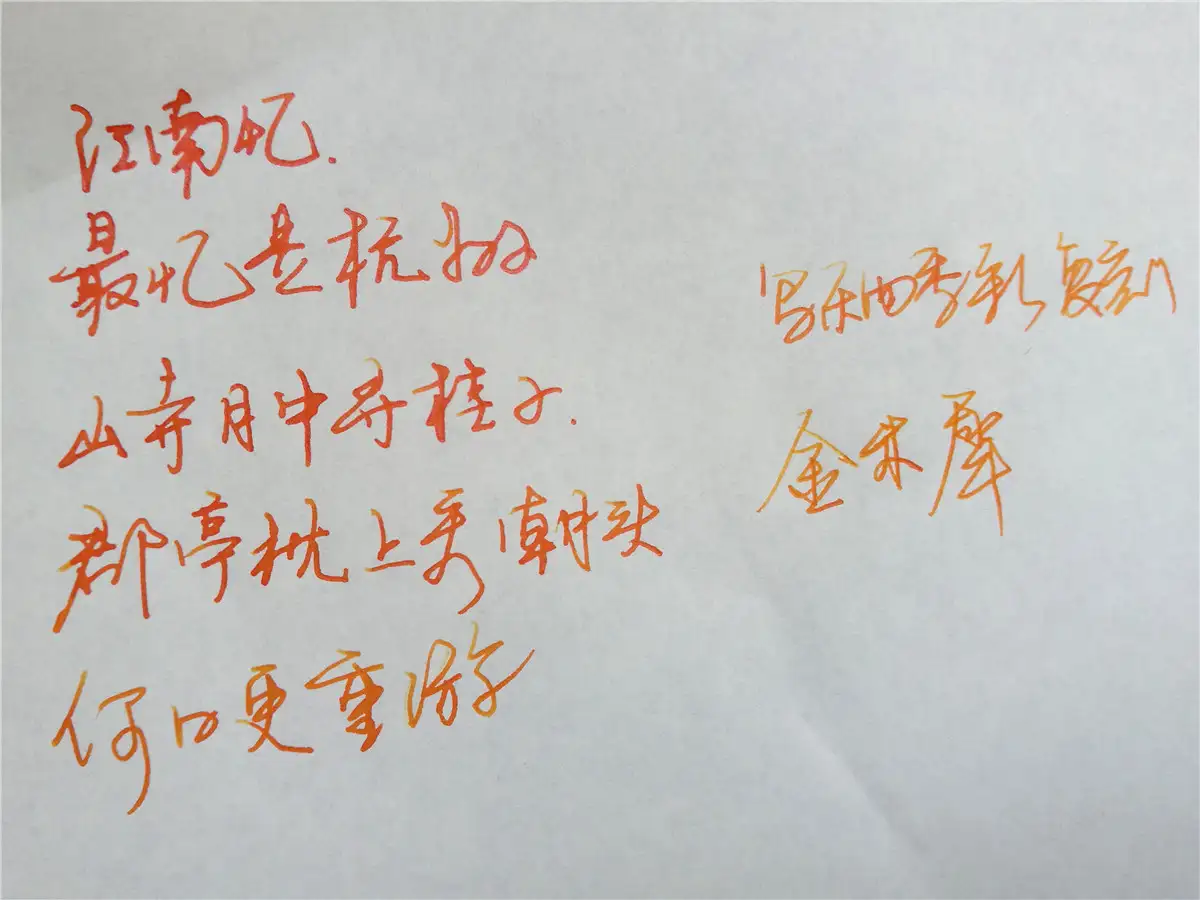 江南忆.
最忆是杭州
山寺月中寻桂子.
郡亭枕上看潮头
何日更重游
写乐四季彩复刻
金木犀